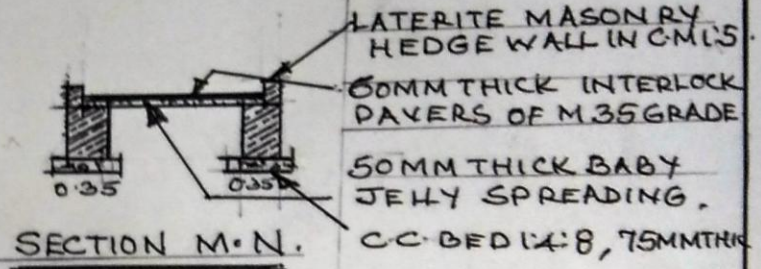 LATERITE MASONRY
HEDGE WALL IN C.M 1:5
60MM THICK INTERLOCK
PAVERS OF M.35 GRADE
50MM THICK BABY
JELLY SPREADING.
C.C. BED 1:4:8, 75MM THK
0.35
0.35
SECTION M.N.